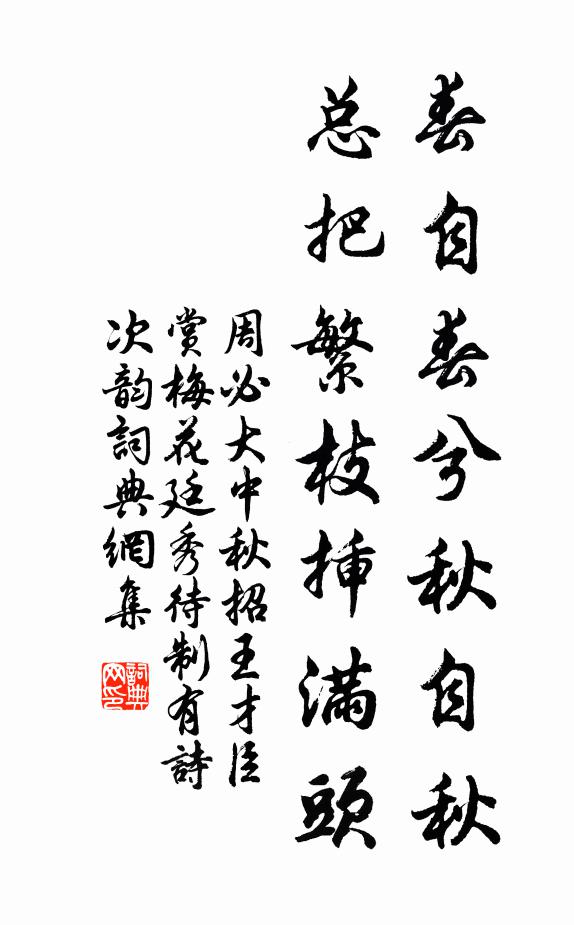 春自春兮秋自秋
总把繁枝挿滿頭
周必大中秋招王才臣
賞梅花廷秀待制有詩
次韵詞典網集
詞典网印